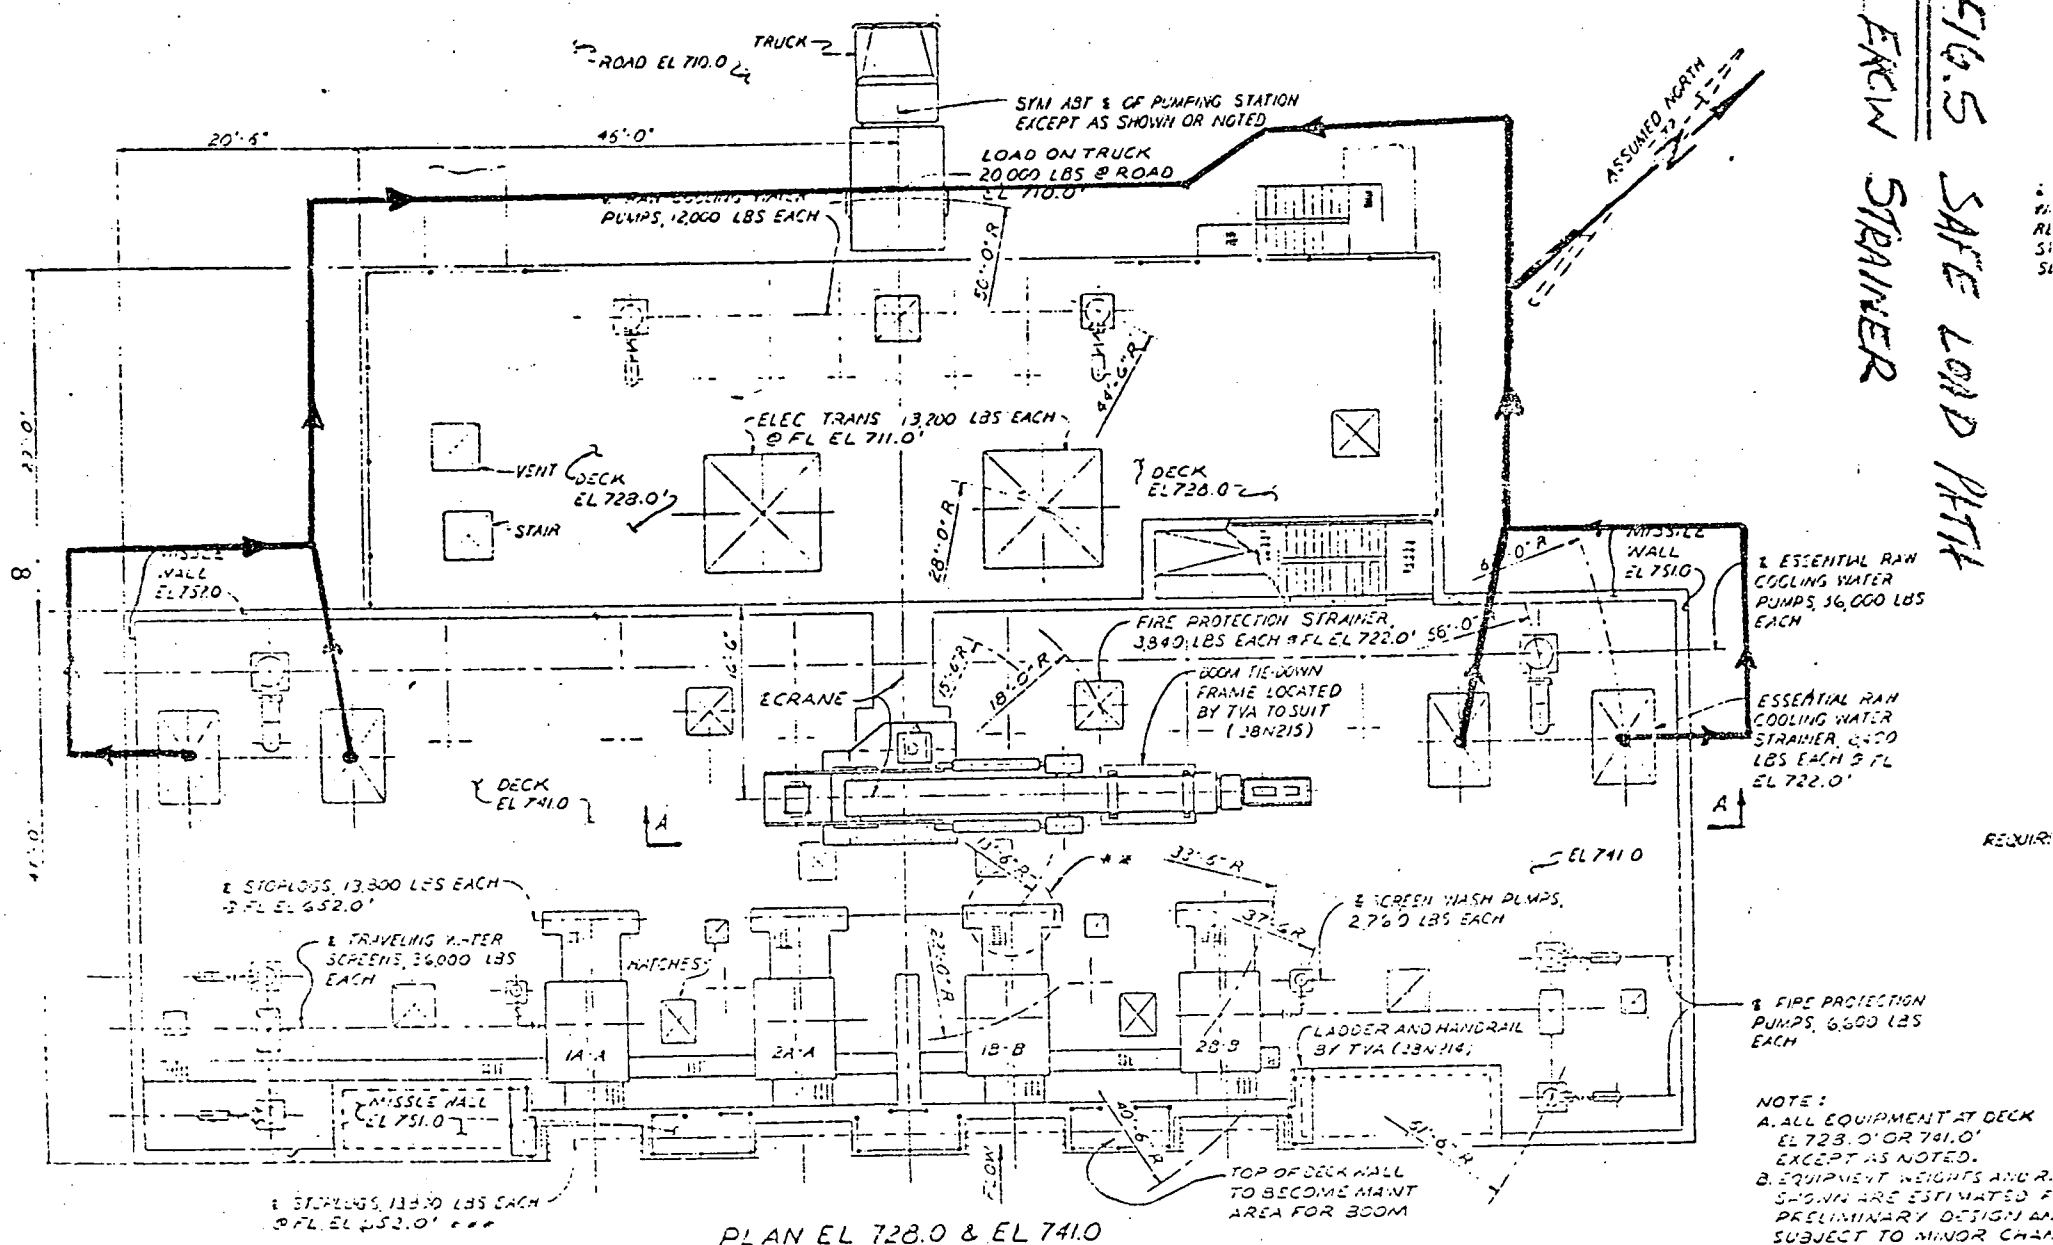 FIG.5 SAFE LOAD PATH
STRAINER
TRUCK
ROAD EL 710.0
SYM ABT ℄ OF PUMPING STATION
EXCEPT AS SHOWN OR NOTED
ASSUMED NORTH
20'-6"
46'-0"
LOAD ON TRUCK
20,000 LBS @ ROAD
EL 710.0'
COOLING WATER
PUMPS, 12,000 LBS EACH
50'-0" R
44'-6" R
ELEC TRANS 13,200 LBS EACH
@ FL EL 711.0'
VENT
DECK
EL 728.0'
DECK
EL 728.0
STAIR
28'-0" R
8
MISSLE
WALL
EL 751.0
MISSILE
WALL
EL 751.0
℄ ESSENTIAL RAW
COOLING WATER
PUMPS, 36,000 LBS
EACH
FIRE PROTECTION STRAINER,
3,840 LBS EACH @ FL EL 722.0'
56'-0"
16'-6"
15'-6" R
18'-0" R
℄ CRANE
BOOM TIE-DOWN
FRAME LOCATED
BY TVA TO SUIT
(38N215)
ESSENTIAL RAW
COOLING WATER
STRAINER,
LBS EACH @ FL
EL 722.0'
DECK
EL 741.0
A
A
REQUIR
13'-6" R
**
33'-6" R
EL 741.0
℄ STOPLOGS, 13,300 LBS EACH
@ FL EL 652.0'
℄ SCREEN WASH PUMPS,
2,760 LBS EACH
37'-6" R
℄ TRAVELING WATER
SCREENS, 36,000 LBS
EACH
HATCHES
22'-0" R
℄ FIRE PROTECTION
PUMPS, 6,600 LBS
EACH
LADDER AND HANDRAIL
BY TVA (38N214)
1A-A
2A-A
1B-B
2B-B
MISSLE WALL
EL 751.0
40'-6" R
FLOW
TOP OF DECK WALL
TO BECOME MAINT
AREA FOR BOOM
℄ STOPLOGS, 13,300 LBS EACH
@ FL. EL 652.0' ***
NOTE:
A. ALL EQUIPMENT AT DECK
EL 728.0' OR 741.0'
EXCEPT AS NOTED.
B. EQUIPMENT WEIGHTS AND R
SHOWN ARE ESTIMATED F
PRELIMINARY DESIGN AN
SUBJECT TO MINOR CHAN
PLAN EL 728.0 & EL 741.0